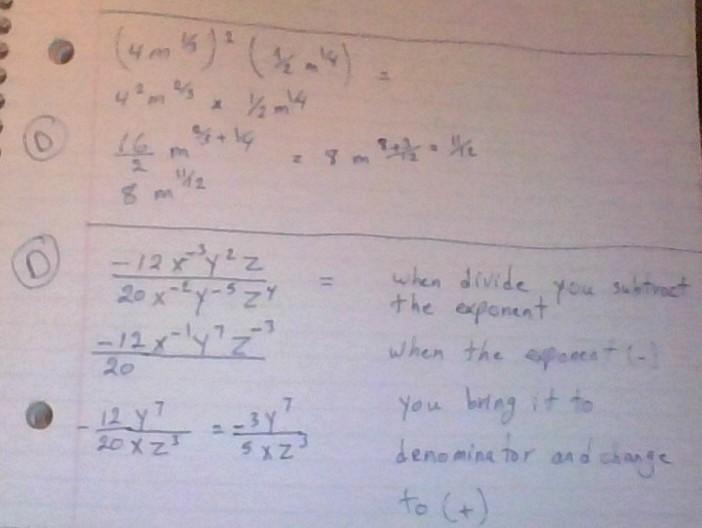 (4 m^1/3)^2 (1/2 m^1/4) =
4^2 m^2/3 x 1/2 m^1/4
D 16/2 m^2/3 + 1/4 = 8 m^8+3/12 = 11/12
8 m^11/12
D -12 x^-3 y^2 z / 20 x^-2 y^-5 z^4 = when divide you subtract
the exponent
-12 x^-1 y^7 z^-3 / 20 when the exponent (-)
you bring it to
- 12 y^7 / 20 x z^3 = -3 y^7 / 5 x z^3
denominator and change
to (+)